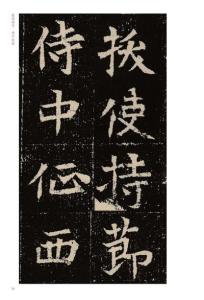 使持節
侍中征西